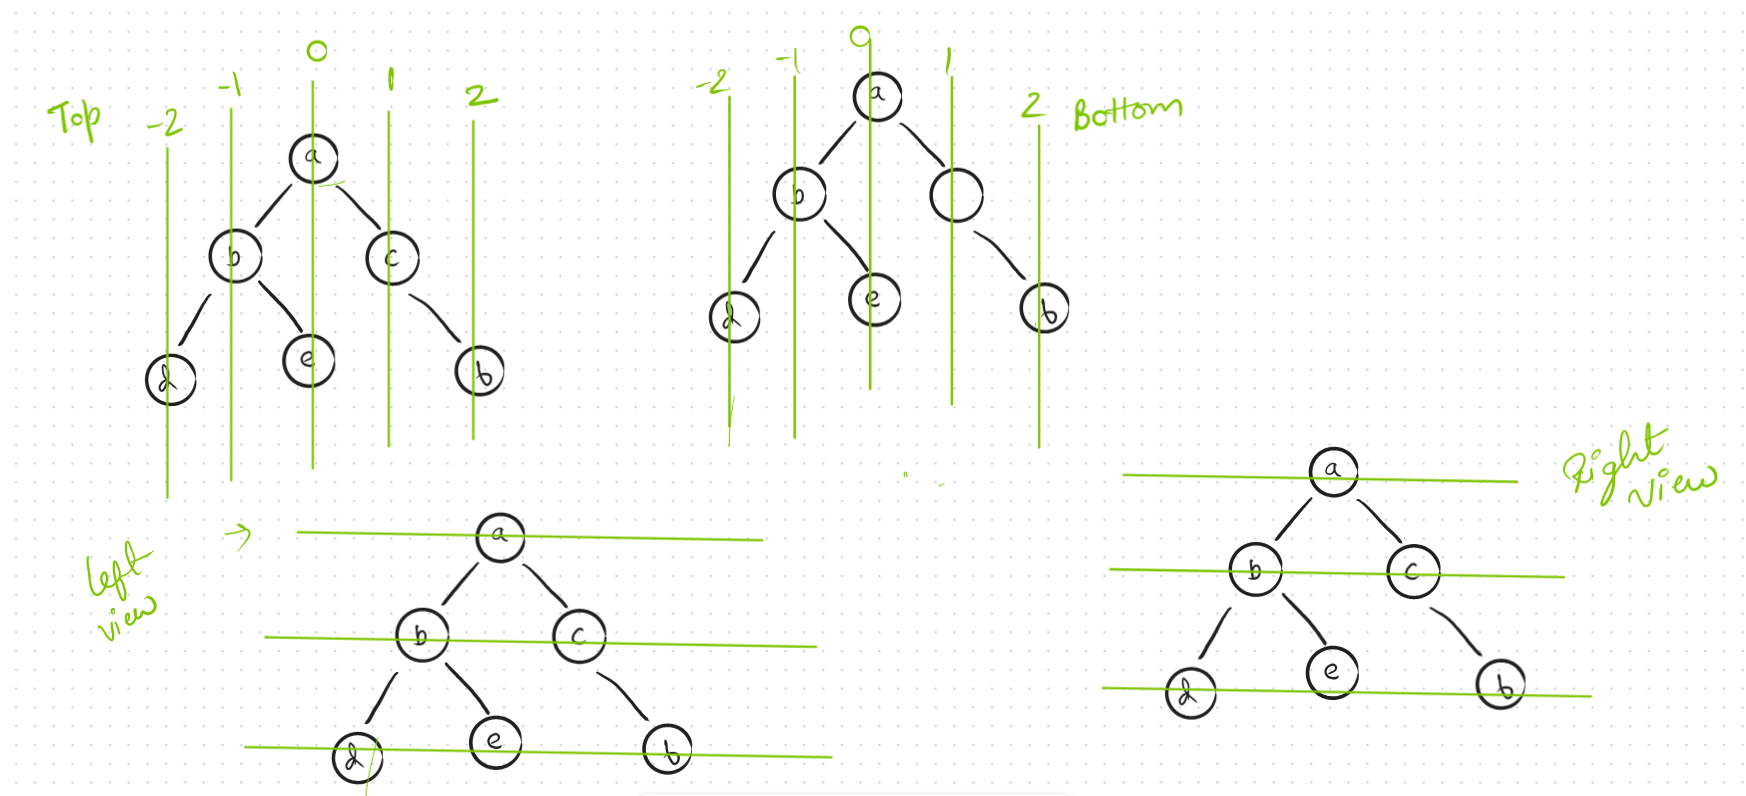 Top
-2 -1 0 1 2
a
b c
d e b
-2 -1 0 1 2
Bottom
a
b
d e b
Left
view
→
a
b c
d e b
Right
view
a
b c
d e b